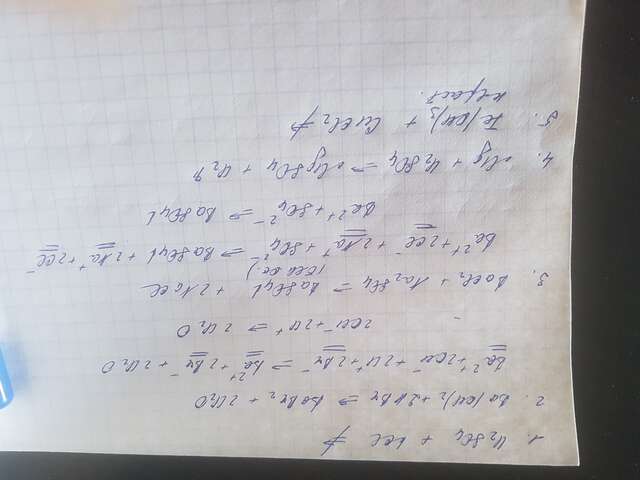 1. H₂SO₄ + HCl ⇏
2. Ba(OH)₂ + 2HBr ⇒ BaBr₂ + 2H₂O
Ba²⁺ + 2OH⁻ + 2H⁺ + 2Br⁻ ⇒ Ba²⁺ + 2Br⁻ + 2H₂O
2OH⁻ + 2H⁺ ⇒ 2H₂O
3. BaCl₂ + Na₂SO₄ ⇒ BaSO₄↓ + 2NaCl
Ba²⁺ + 2Cl⁻ + 2Na⁺ + SO₄²⁻ ⇒ BaSO₄↓ + 2Na⁺ + 2Cl⁻
Ba²⁺ + SO₄²⁻ ⇒ BaSO₄↓
4. Mg + H₂SO₄ ⇒ MgSO₄ + H₂↑
5. Fe(OH)₃ + CuCl₂ ⇏
нераст.